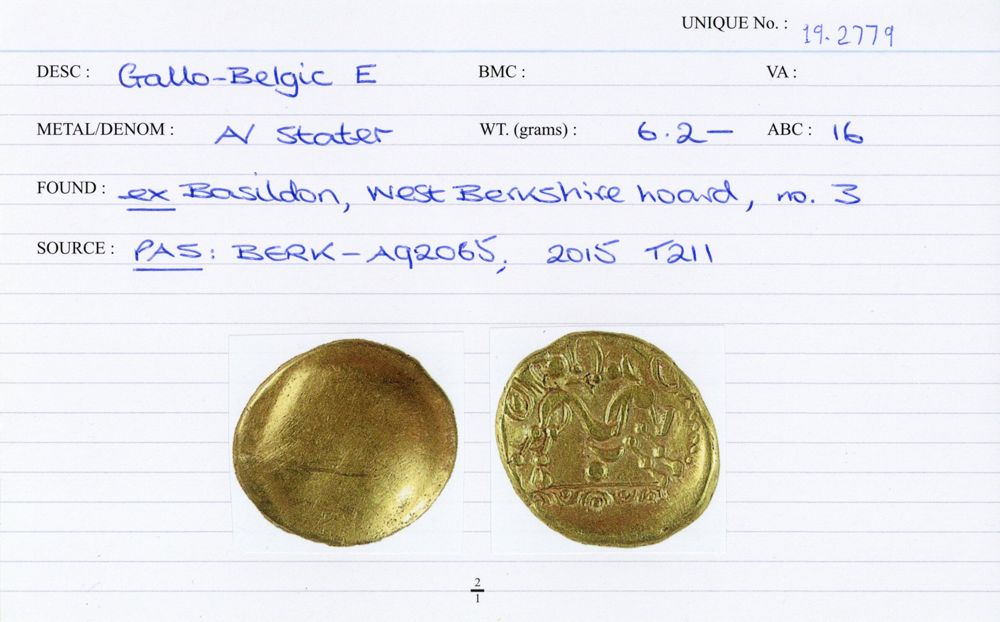 UNIQUE No. : 19.2779
DESC : Gallo-Belgic E BMC : VA :
METAL/DENOM : AV Stater WT. (grams) : 6.2— ABC : 16
FOUND : ex Basildon, West Berkshire hoard, no. 3
SOURCE : PAS: BERK-A92065, 2015 T211
2
1